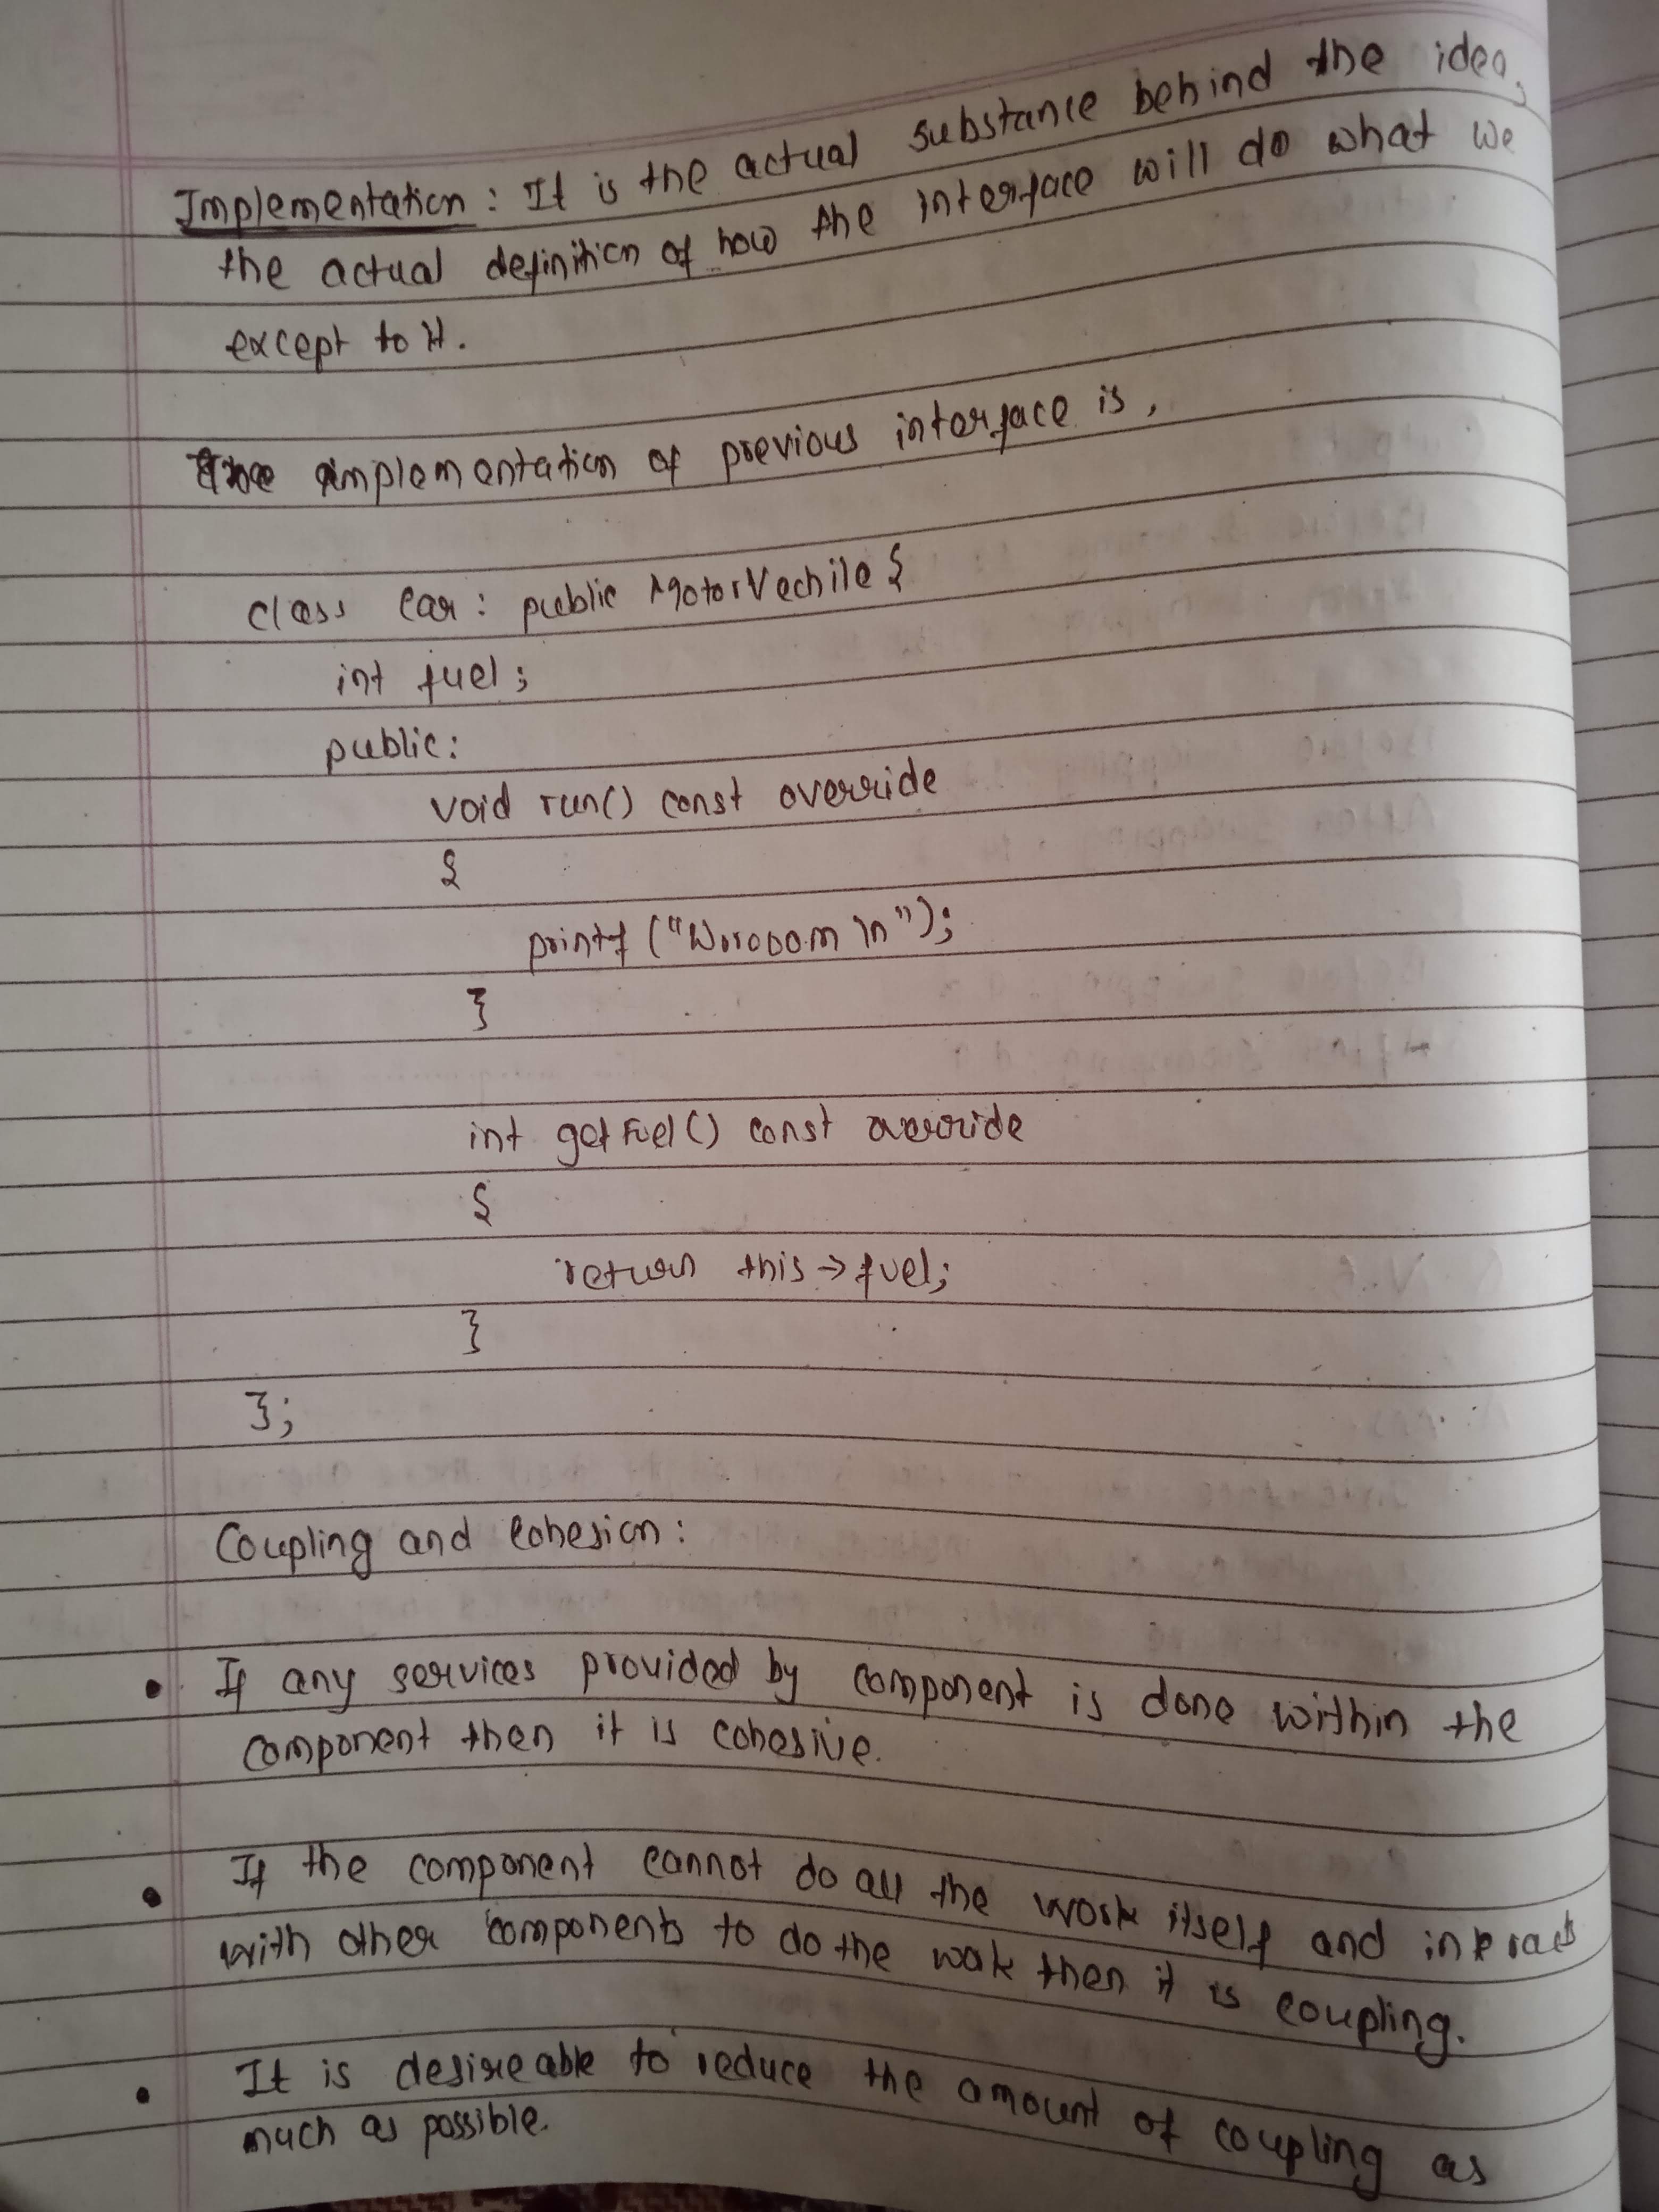 Implementation : It is the actual substance behind the idea,
the actual definition of how the interface will do what we
except to it.
The implementation of previous interface is,
class Car : public MotorVechile {
int fuel;
public:
void run() const override
{
printf ("Wrroooom \n");
}
int getFuel() const override
{
return this->fuel;
}
};
Coupling and Cohesion :
• If any services provided by component is done within the
component then it is cohesive.
• If the component cannot do all the work itself and interacts
with other components to do the work then it is coupling.
• It is desireable to reduce the amount of coupling as
much as possible.